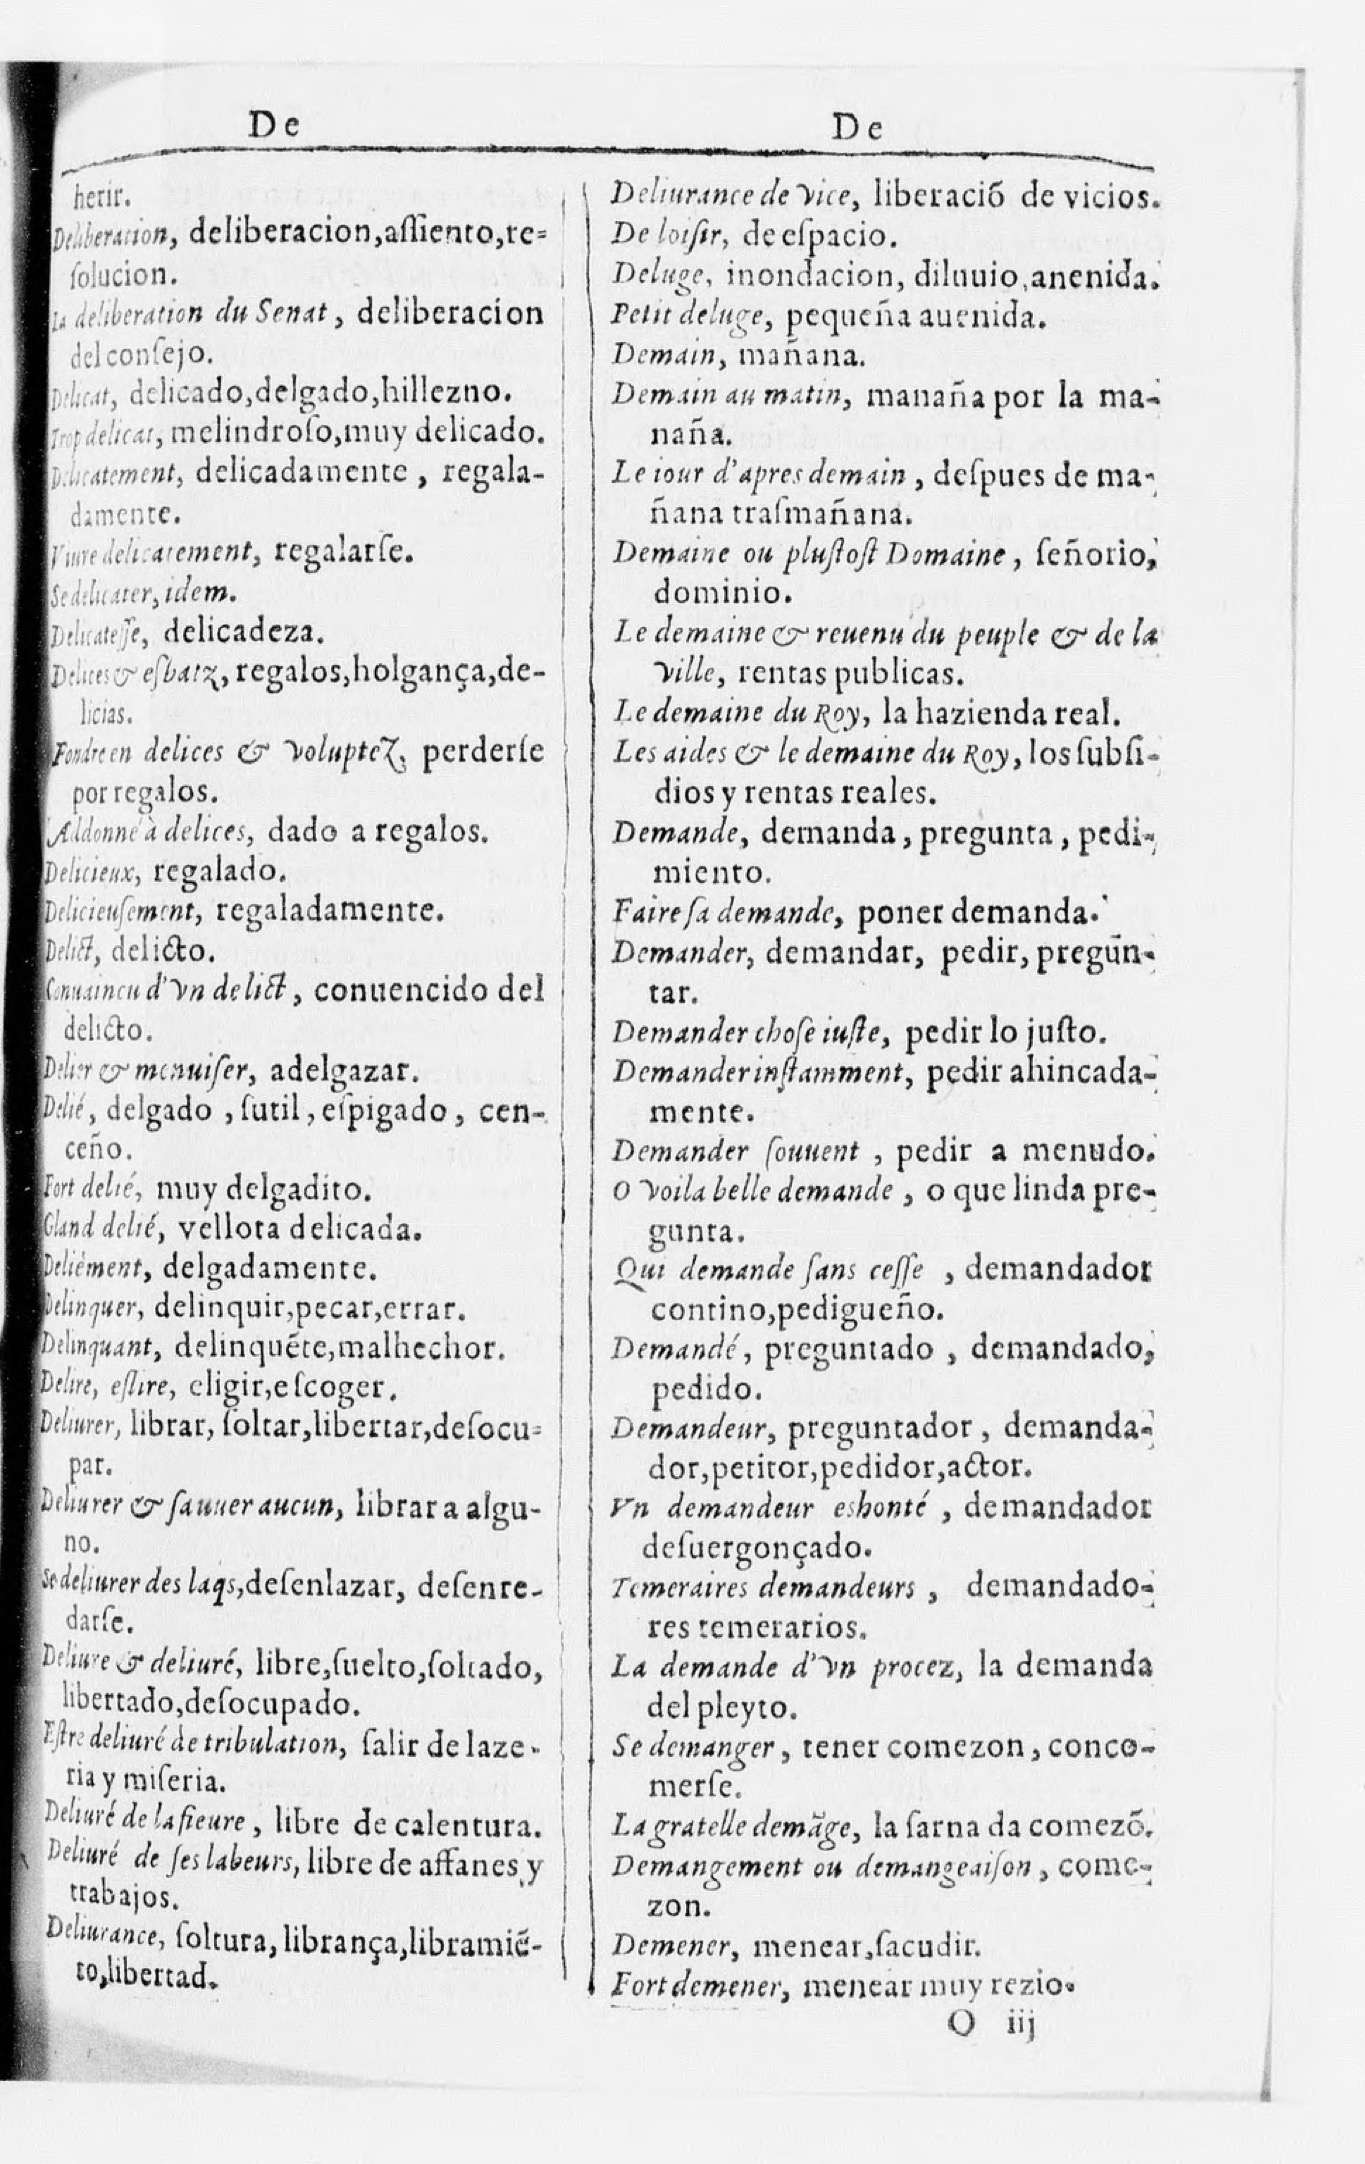 De
herir.
Deliberation, deliberacion,aſſiento,re=
ſolucion.
La deliberation du Senat, deliberacion
del conſejo.
Delicat, delicado,delgado,hillezno.
Trop delicat, melindroſo,muy delicado.
Delicatement, delicadamente, regala-
damente.
Viure delicatement, regalarſe.
Se delicater, idem.
Delicateſſe, delicadeza.
Delices & eſbatz, regalos,holgança,de-
licias.
Fondre en delices & voluptez, perderſe
por regalos.
Addonné à delices, dado a regalos.
Delicieux, regalado.
Delicieuſement, regaladamente.
Delict, delicto.
Conuaincu d'vn delict, conuencido del
delicto.
Delier & menuiſer, adelgazar.
Delié, delgado, ſutil, eſpigado, cen-
ceño.
Fort delié, muy delgadito.
Gland delié, vellota delicada.
Deliément, delgadamente.
Delinquer, delinquir,pecar,errar.
Delinquant, delinquēte,malhechor.
Delire, eſlire, eligir,eſcoger.
Deliurer, librar, ſoltar,libertar,deſocu=
par.
Deliurer & ſauuer aucun, librar a algu-
no.
Se deliurer des laqs,deſenlazar, deſenre-
darſe.
Deliure & deliuré, libre,ſuelto,ſoltado,
libertado,deſocupado.
Eſtre deliuré de tribulation, ſalir de laze-
ria y miſeria.
Deliuré de la fieure, libre de calentura.
Deliuré de ſes labeurs, libre de affanes y
trabajos.
Deliurance, ſoltura, librança,libramiē-
to,libertad.
De
Deliurance de vice, liberaciō de vicios.
De loiſir, de eſpacio.
Deluge, inondacion, diluuio,anenida.
Petit deluge, pequeña auenida.
Demain, mañana.
Demain au matin, manaña por la ma-
naña.
Le iour d'apres demain, deſpues de ma-
ñana traſmañana.
Demaine ou pluſtoſt Domaine, ſeñorio,
dominio.
Le demaine & reuenu du peuple & de la
ville, rentas publicas.
Le demaine du Roy, la hazienda real.
Les aides & le demaine du Roy, los ſubſi-
dios y rentas reales.
Demande, demanda, pregunta, pedi-
miento.
Faire ſa demande, poner demanda.
Demander, demandar, pedir, pregūn-
tar.
Demander choſe iuſte, pedir lo juſto.
Demander inſtamment, pedir ahincada-
mente.
Demander ſouuent, pedir a menudo.
O voila belle demande, o que linda pre-
gunta.
Qui demande ſans ceſſe, demandador
contino,pedigueño.
Demandé, preguntado, demandado,
pedido.
Demandeur, preguntador, demanda-
dor,petitor,pedidor,actor.
Vn demandeur eshonté, demandador
deſuergonçado.
Temeraires demandeurs, demandado-
res temerarios.
La demande d'vn procez, la demanda
del pleyto.
Se demanger, tener comezon, conco-
merſe.
La gratelle demāge, la ſarna da comezō.
Demangement ou demangeaiſon, come-
zon.
Demener, menear,ſacudir.
Fort demener, menear muy rezio.
O iij